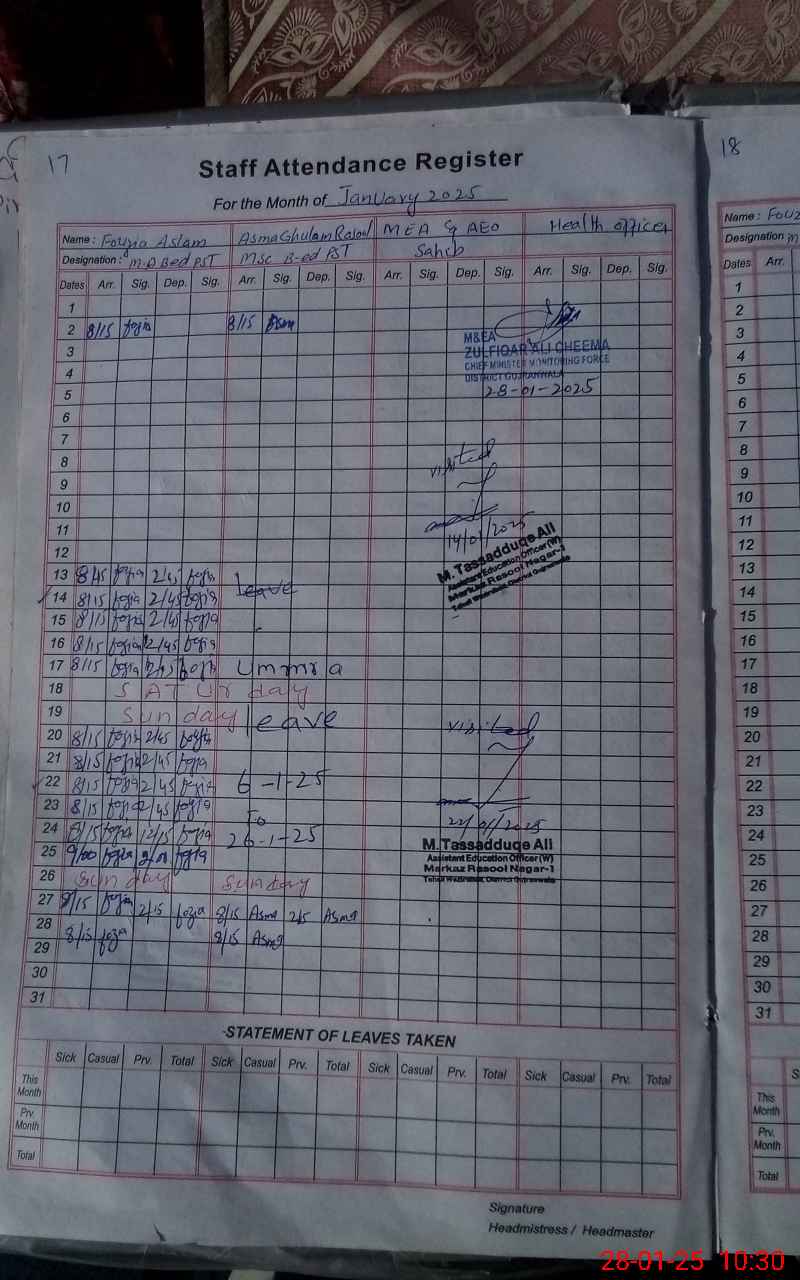 17
Staff Attendance Register
For the Month of January 2025
Name : Fouzia Aslam AsmaGhulamRasool MEA & AEO Health officer
Designation : M.A Bed PST MSc B-ed PST Sahib
Dates Arr. Sig. Dep. Sig. Arr. Sig. Dep. Sig. Arr. Sig. Dep. Sig. Arr. Sig. Dep. Sig.
1
2 8/15 fozia 8/15 Asma
3
4
5
6
7
8
9
10
11
12
13 8/45 fozia 2/45 fozia
14 8/15 fozia 2/45 fozia leave
15 8/15 fozia 2/45 fozia
16 8/15 fozia 2/45 fozia
17 8/15 fozia 2/45 fozia Ummra
18 SATUrday
19 Sunday leave
20 8/15 fozia 2/45 fozia
21 8/15 fozia 2/45 fozia
22 8/15 fozia 2/45 fozia 6-1-25
23 8/15 fozia 2/45 fozia To
24 8/15 fozia 12/15 fozia 26-1-25
25 9/00 fozia fozia
26 Sunday Sunday
27 8/15 fozia 2/15 foza 8/15 Asma 2/5 Asma
28 8/15 foza 8/15 Asma
29
30
31
M&EA
ZULFIQAR ALI CHEEMA
CHIEF MINISTER MONITORING FORCE
DISTRICT GUJRANWALA
28-01-2025
visited
14/01/2025
M. Tassadduqe Ali
Assistant Education Officer (W)
Markaz Rasool Nagar-1
visited
22/01/2025
M. Tassadduqe Ali
Assistant Education Officer (W)
Markaz Rasool Nagar-1
STATEMENT OF LEAVES TAKEN
Sick Casual Prv. Total Sick Casual Prv. Total Sick Casual Prv. Total Sick Casual Prv. Total
This Month
Prv. Month
Total
Signature
Headmistress / Headmaster
18
Name : Fouz
Designation : m
Dates Arr.
1
2
3
4
5
6
7
8
9
10
11
12
13
14
15
16
17
18
19
20
21
22
23
24
25
26
27
28
29
30
31
S
This Month
Prv. Month
Total
28-01-25 10:30